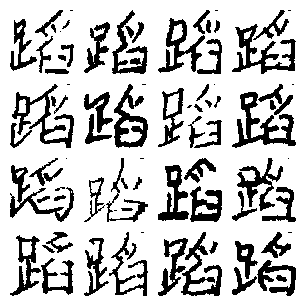 蹈蹈蹈蹈
蹈蹈蹈蹈
蹈蹈蹈蹈
蹈蹈蹈蹈